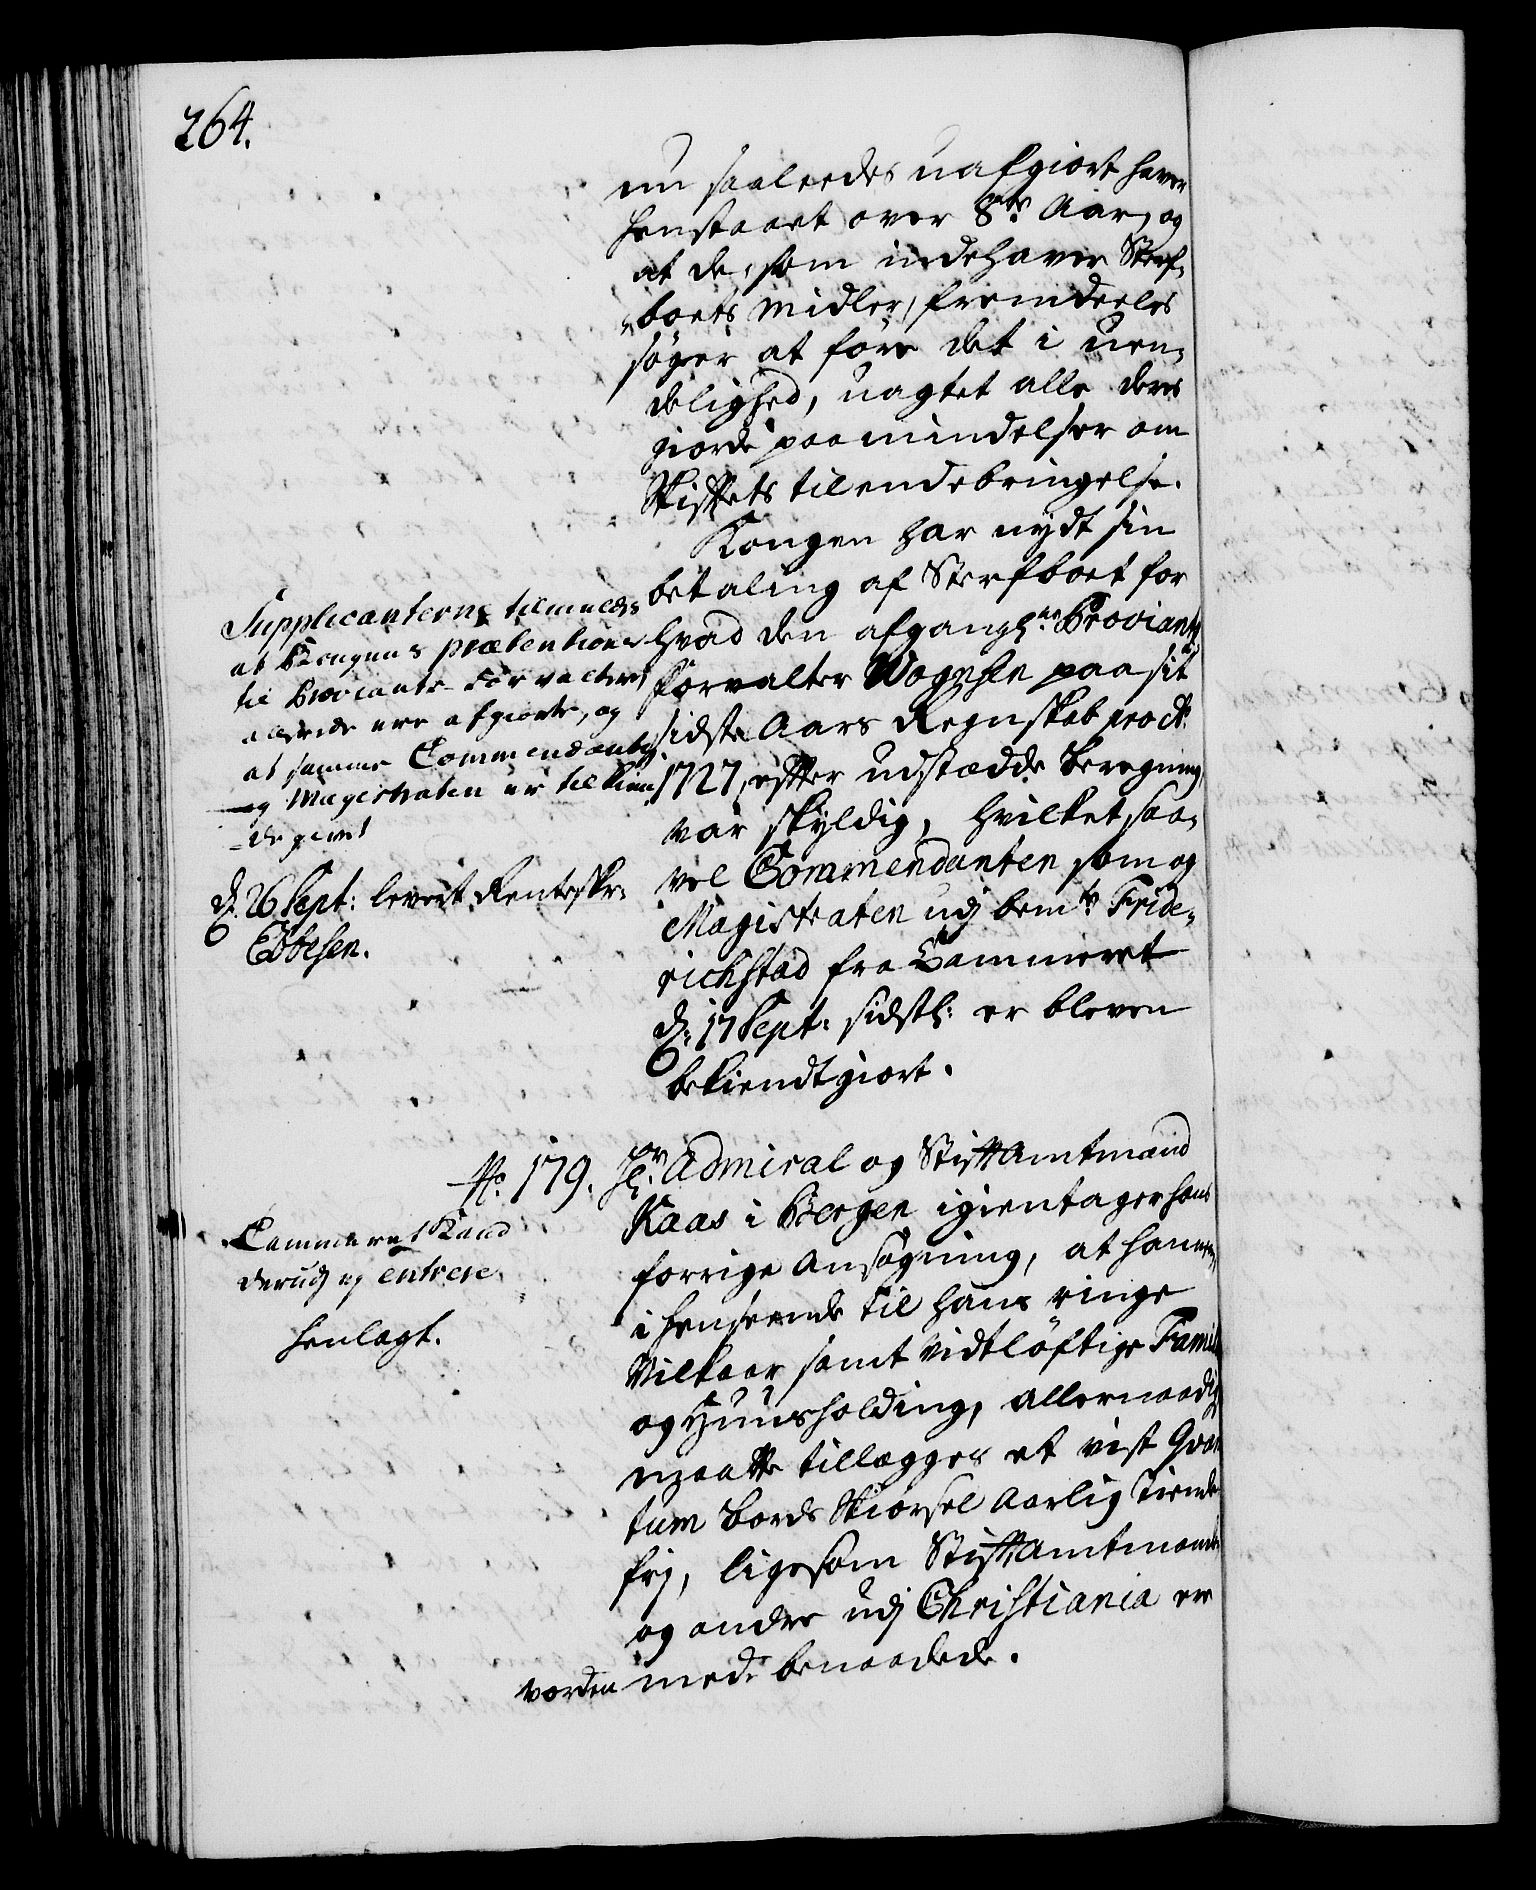 264.
nu saaleedes uafgiort haver
henstaaet over 8te Aar, og
at de, som indehaver Sterf-
boets Midler, fremdeeles
søger at føre det i uen-
delighed, uagtet alle deres
giorde paamindelser om
Skiftets tilendebringelse.
Kongen har nydt sin
betaling af Sterfboet for
hvad den afgangne Proviant-
forvalter Wognsen paa sit
sidste Aars Regnskab pro
1727, efter udstædde Beregning
var skyldig, hvilket saa-
vel Commendanten som og
Magistraten udj bemte Fride-
richstad fra Cammeret
d. 17 Sept: sidstl: er bleven
bekiendtgiort.
Supplicanterne tilmeldes
at Kongens prætentioner
til Proviant-Forvalteren
allerede ere afgiorte, og
at samme Commendanten
og Magistraten er tilkiende-
givet
d. 26 Sept: levert Renteskr:
Ebbesen.
No. 179. Hr. Admiral og Stiftamtmand
Kaas i Bergen igientager hans
forrige Ansøgning, at ham
i henseende til hans ringe
Vilkaar samt vidtløftige Familie
og Huusholding, allernaadigst
maatte tillægges et vist Qvan-
tum Bords Skiørsel Aarlig Tiende
frj, ligesom Stiftamtmanden
og andre udj Christiania ere
vorden med benaadede.
Cammeret kand
derudj ej entrere.
henlagt.